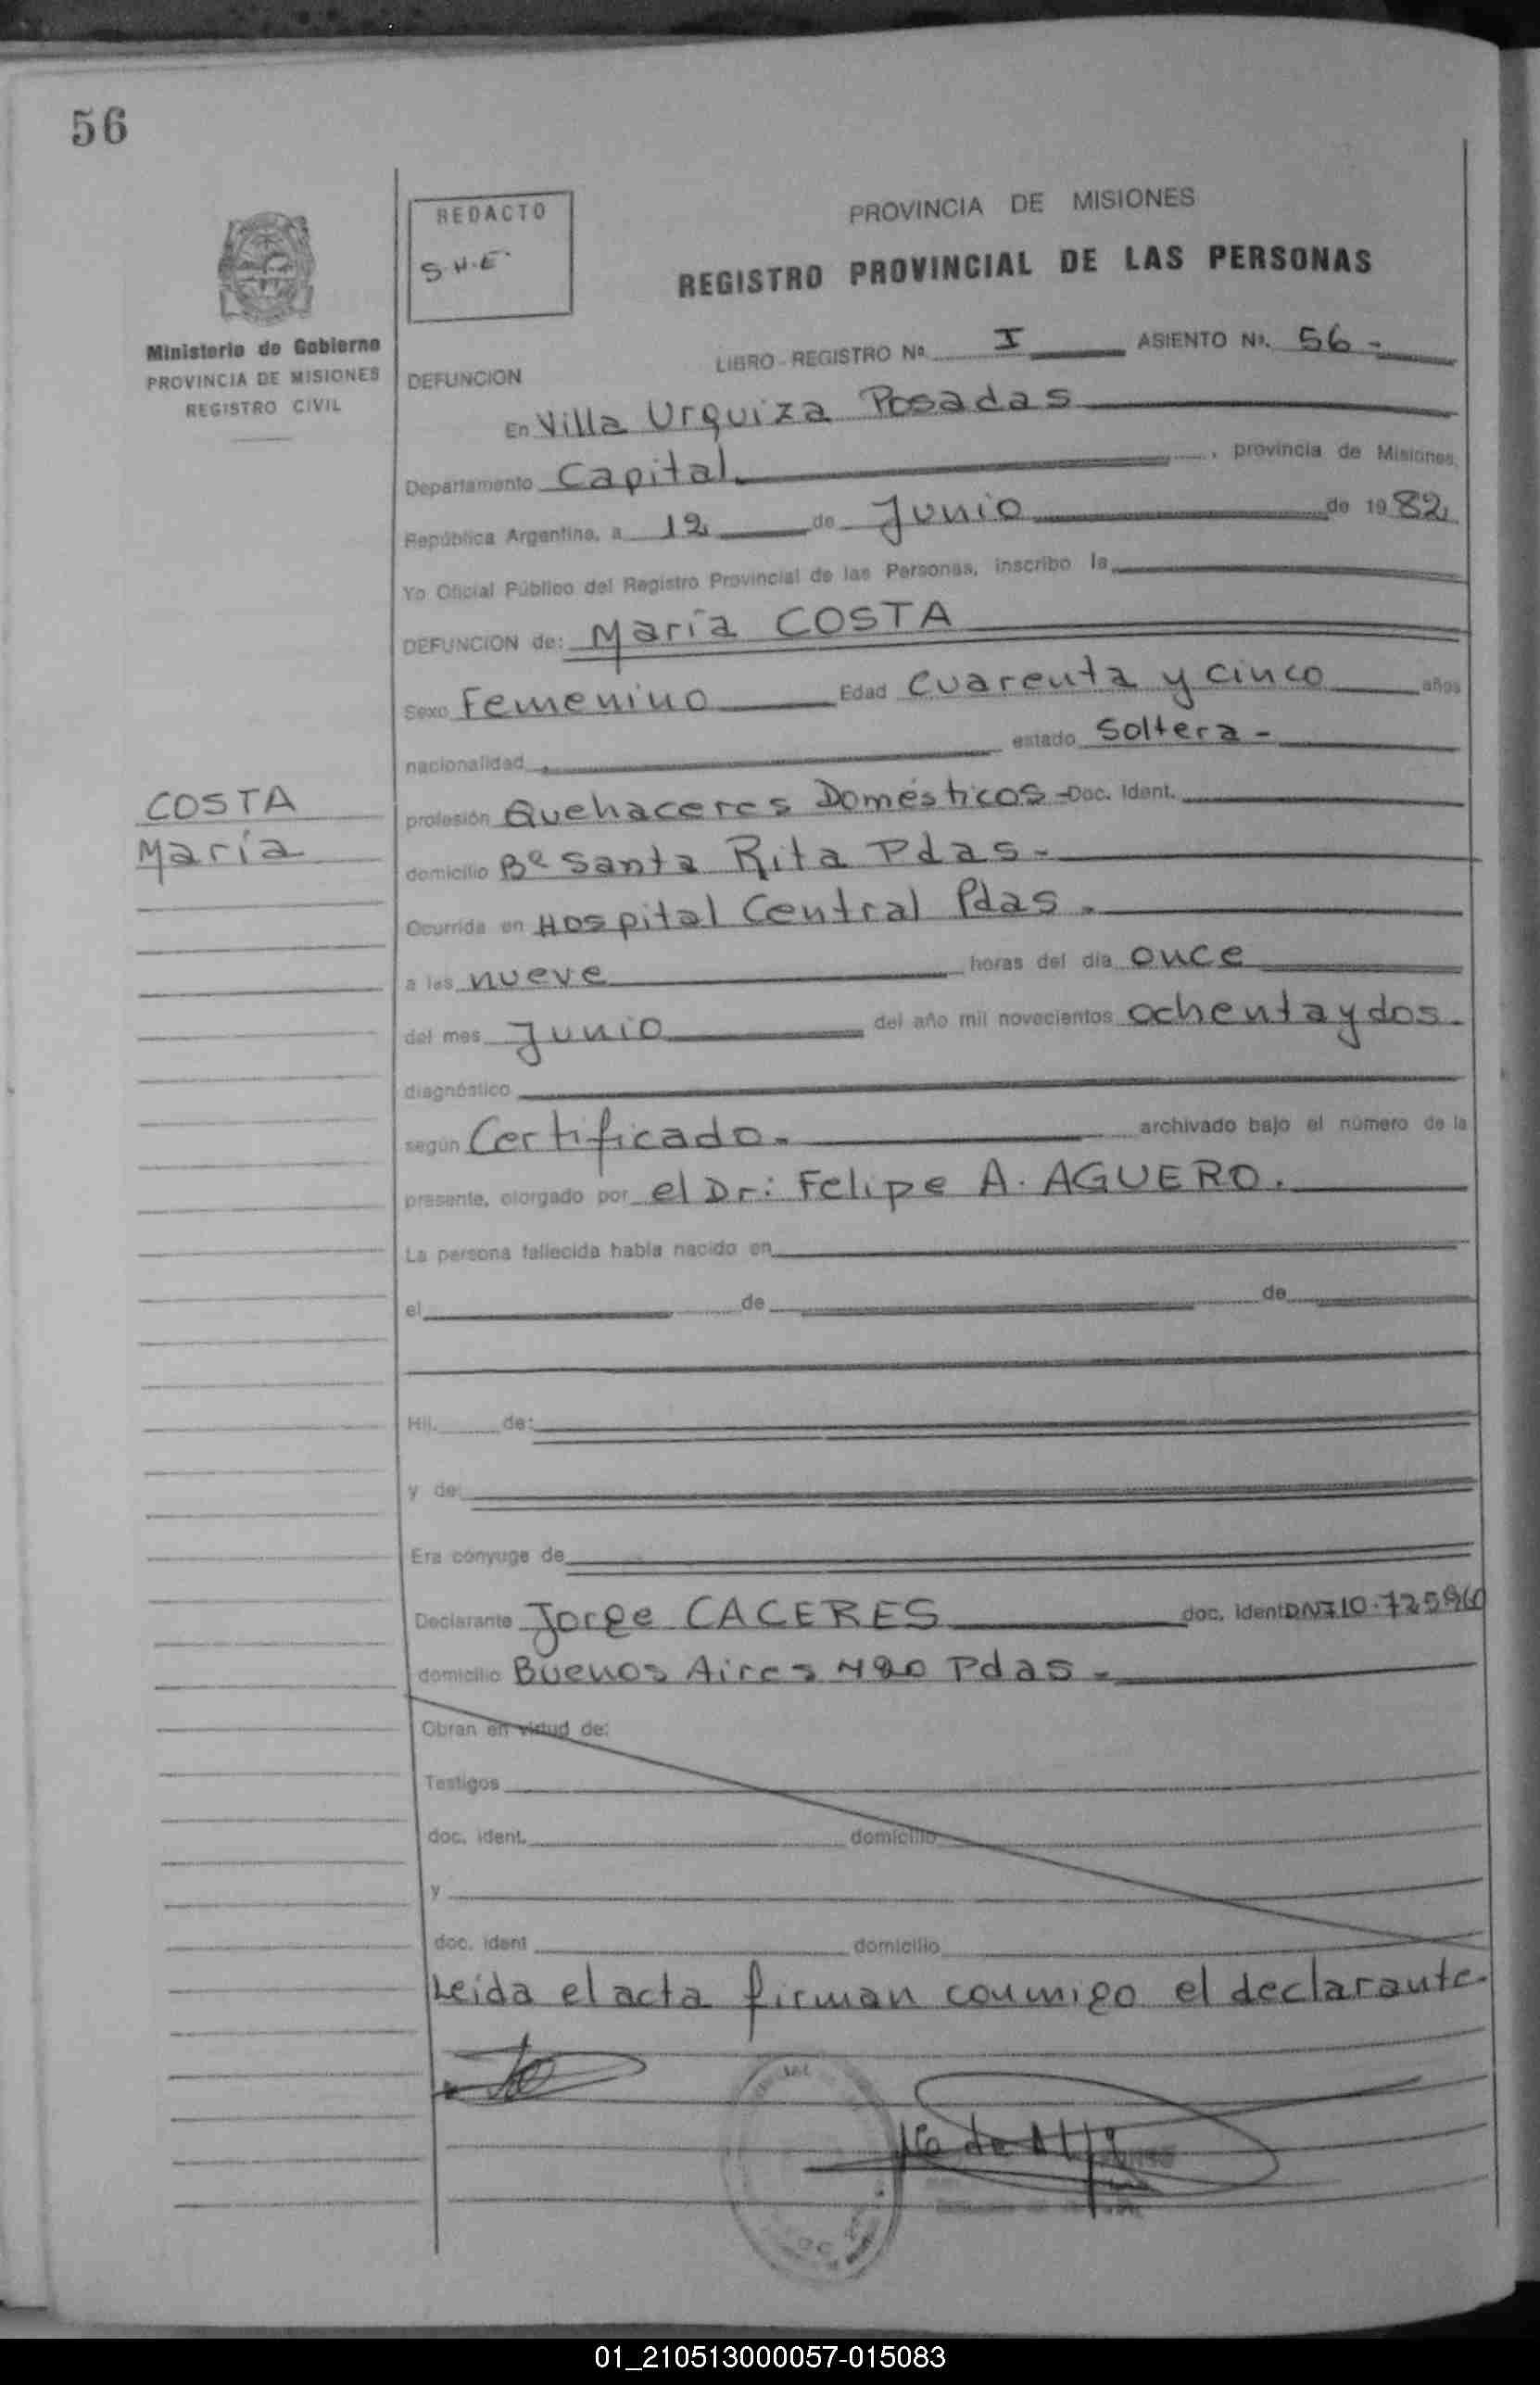 56
REDACTO
S.H.E.
PROVINCIA DE MISIONES
REGISTRO PROVINCIAL DE LAS PERSONAS
Ministerio de Gobierno
PROVINCIA DE MISIONES
REGISTRO CIVIL
LIBRO - REGISTRO Nº I ASIENTO Nº. 56-
DEFUNCION
En Villa Urquiza Posadas
Departamento Capital. , provincia de Misiones,
República Argentina, a 12 de Junio de 1982
Yo Oficial Público del Registro Provincial de las Personas, inscribo la
DEFUNCION de: María COSTA
Sexo Femenino Edad Cuarenta y cinco años
nacionalidad estado Soltera -
COSTA
María
profesión Quehaceres Domésticos - Doc. Ident.
domicilio Bº Santa Rita Pdas -
Ocurrida en Hospital Central Pdas.
a las nueve horas del día once
del mes Junio del año mil novecientos ochenta y dos.
diagnóstico
según Certificado. archivado bajo el número de la
presente, otorgado por el Dr: Felipe A. AGUERO.
La persona fallecida había nacido en
el de de
Hij. de:
y de:
Era cónyuge de
Declarante Jorge CACERES doc. Ident DNI
domicilio Buenos Aires Pdas -
Obran en virtud de:
Testigos
doc. ident. domicilio
y
doc. ident domicilio
Leída el acta firman conmigo el declarante.
01_210513000057-015083